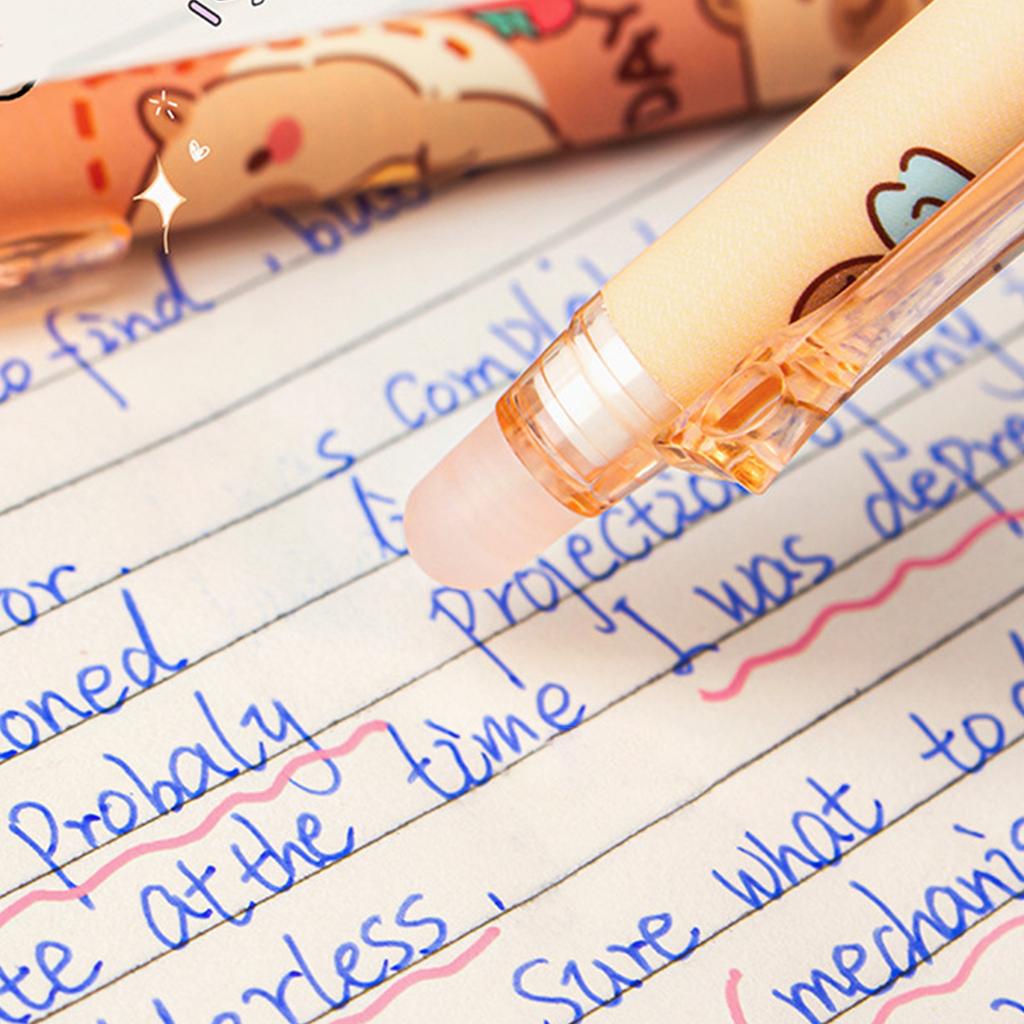 DAY
to find, but
or. s compli
oned
Probaly projection of my
te at the time I was depre
erless,
Sure what to d
(mechanis